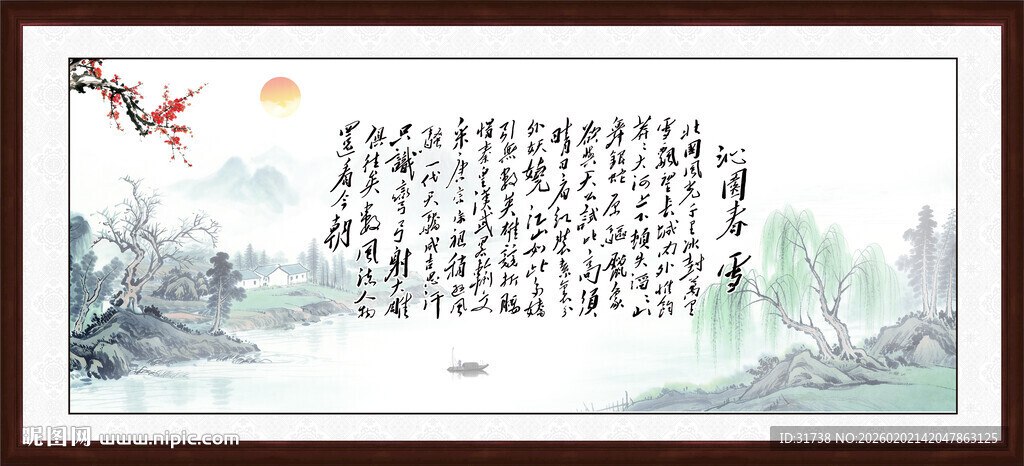 沁園春 雪
北國風光千里冰封萬里
雪飄望長城內外惟餘
莽〻大河上下頓失滔〻山
舞銀蛇原驅臘象
欲與天公試比高須
晴日看紅裝素裹分
外妖嬈江山如此多嬌
引無數英雄競折腰
惜秦皇漢武略輸文
采唐宗宋祖稍遜風
騷一代天驕成吉思汗
只識彎弓射大雕
俱往矣數風流人物
還看今朝
昵图网 www.nipic.com
ID:31738 NO:20260202142047863125